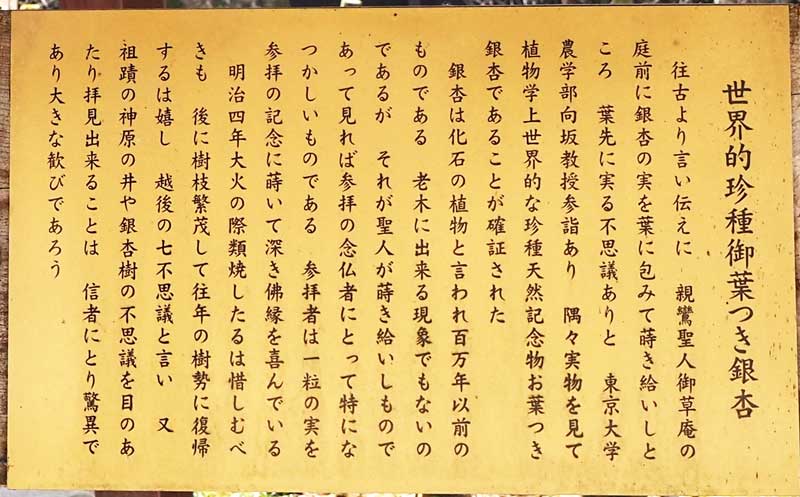 世界的珍種御葉つき銀杏
往古より言い伝えに　親鸞聖人御草庵の
庭前に銀杏の実を葉に包みて蒔き給いしと
ころ　葉先に実る不思議ありと　東京大学
農学部向坂教授参詣あり　隅々実物を見て
植物学上世界的な珍種天然記念物お葉つき
銀杏であることが確証された
銀杏は化石の植物と言われ百万年以前の
ものである　老木に出来る現象でもないの
であるが　それが聖人が蒔き給いしもので
あって見れば参拝の念仏者にとって特にな
つかしいものである　参拝者は一粒の実を
参拝の記念に蒔いて深き佛縁を喜んでいる
明治四年大火の際類焼したるは惜しむべ
きも　後に樹枝繁茂して往年の樹勢に復帰
するは嬉し　越後の七不思議と言い　又
祖蹟の神原の井や銀杏樹の不思議を目のあ
たり拝見出来ることは　信者にとり驚異で
あり大きな歓びであろう